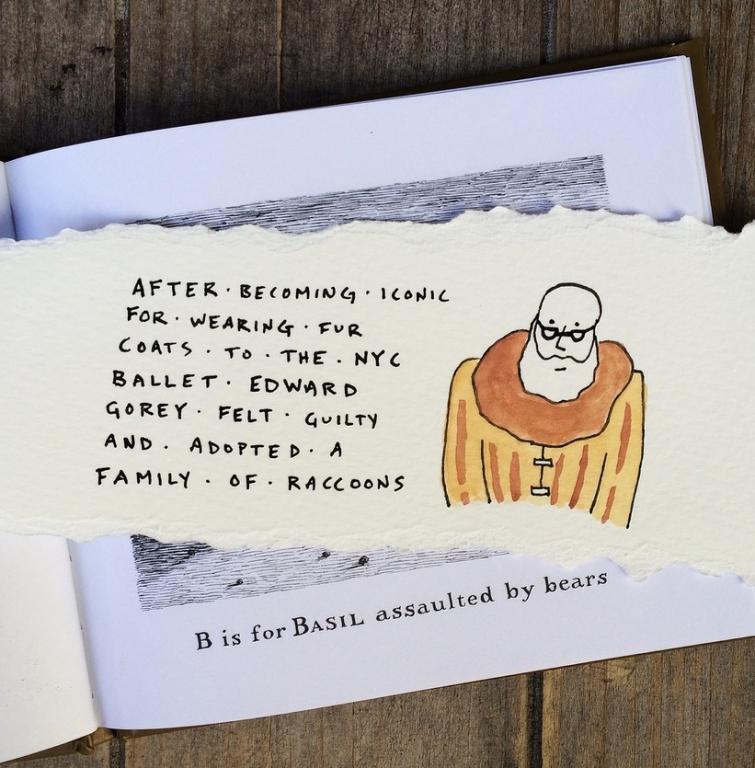 AFTER · BECOMING · ICONIC
FOR · WEARING · FUR
COATS · TO · THE · NYC
BALLET · EDWARD
GOREY · FELT · GUILTY
AND · ADOPTED · A
FAMILY · OF · RACCOONS
B is for BASIL assaulted by bears